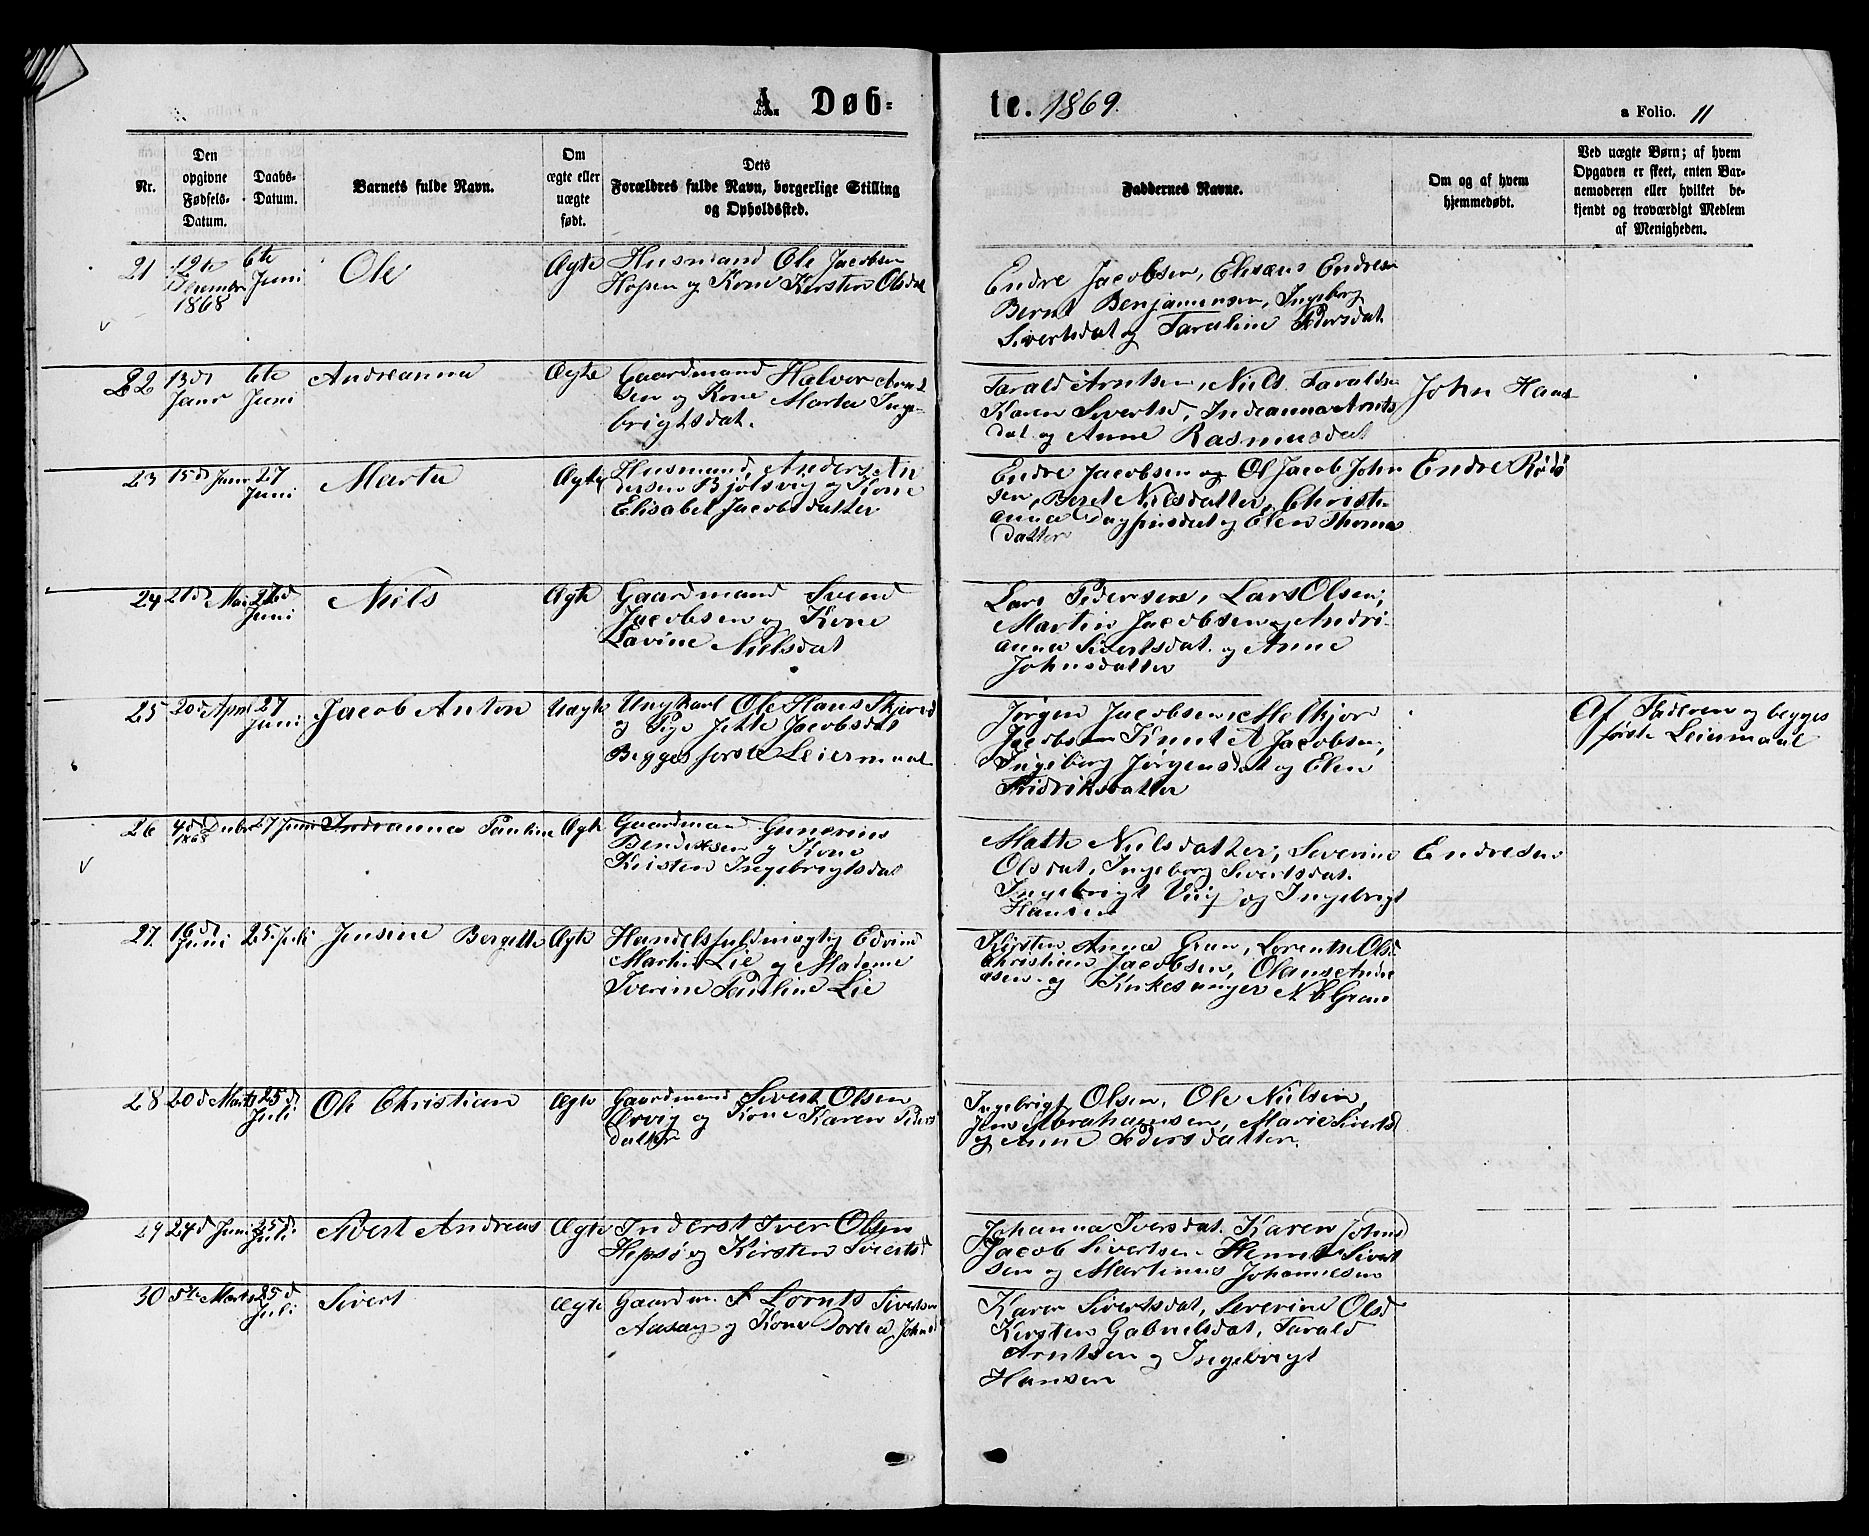 A. Døb-
te. 1869.
a Folio. 11
Nr.
Den
opgivne
Fødsels-
Datum.
Daabs-
Datum.
Barnets fulde Navn.
Om
ægte eller
uægte
født.
Dets
Forældres fulde Navn, borgerlige Stilling
og Opholdssted.
Faddernes Navne.
Om og af hvem
hjemmedøbt.
Ved uægte Børn; af hvem
Opgaven er skeet, enten Bar-
nemoderen eller hvilket be-
kjendt og troværdigt Medlem
af Menigheden.
21
12te
1868
6te
Juni
Ole
Ægte
Husmand Ole Jacobsen
Hopen og Kone Kirsten Olsdat
Endre Jacobsen, Elisæus Endresen
Bernt Benjaminsen, Ingeborg
Sivertsdat og Taraline Pedersdat
22
13de
Janr
6te
Juni
Andreanna
Ægte
Gaardmand Halvor Arnt
sen og Kone Marta Inge-
brigtsdat.
Tarald Arntsen, Niels Taraldsen
Karen Sivertsd, Indianna Arnts
dat og Anne Rasmusdat
John Hans
23
15d Janr
27
Juni
Marta
Ægte
Husmand, Anders An
dersen Bjølsvig og Kone
Elisabet Jacobsdatter
Endre Jacobsen og Ol Jacob John
sen, Beret Nilsdatter, Christi-
anna Dagfinsdat og Elen Thomas
datter
Endre Rødø
24
21d Mai
27d
Juni
Niels
Ægte
Gaardmand Svend
Jacobsen og Kone
Lavine Nielsdat
Lars Pedersen, Lars Olsen,
Martin Jacobsen og Andri-
anna Sivertsdat og Anne
Johnsdatter
25
20d Apri
27
Juni
Jacob Anton
Uægte
Ungkarl Ole Hans
og Pige Jette Jacobsdat
Begges første Leiermaal
Jørgen Jacobsen, Melkjor
Jacobsen Knut A Jacobsen,
Ingeborg Jørgensdat og Elen
Fridriksdatter
Af Faderen og begges
første Leiermaal
26
4d Decbr
1868
27 Juni
Indeanna Pauline
Ægte
Gaardmand Gunerius
Bendixsen og Kone
Kristen Ingebrigtsdat
Mathe Nielsdatter, Severine
Olsdat, Ingeborg Sivertsdat.
Ingebrigt Viig og Ingebrigt
Hansen
Endresen
27
16de
Juni
25 Juli
Jensine Bergette
Ægte
Handelsfuldmægtig Edvind
Martin Lie og Madame
Iverine Pauline Lie
Kirsten Anna Gran, Lorentse Olsd
Christian Jacobsen, Olaus Andre
asen og Kirkesanger N. E Gran
28
20d Marts
25d
Juli
Ole Christian
Ægte
Gaardmand Sivert Olsen
Ørvig og Kone Karen Peders
datter
Ingebrigt Olsen, Ole Nielsen,
Jens Abrahamsen, Marie Sivertsd
og Anne Pedersdatter.
29
24d Juni
25d
Juli
Sivert Andreas
Ægte
Inderst Iver Olsen
Hepsø og Kirsten Siverts
Johanna Iversdat. Karen Johnsd
Jacob Sivertsen Hemet Sivert
sen og Martinus Johannesen
30
5te Marts
25d
Juli
Sivert
Ægte
Gaardm. Lornts Sivertsen
Aasæg og Kone Dortea Johnsd
Karen Sivertsdat, Severine Olsd
Kirsten Gabrielsdat, Tarald
Arntsen og Ingebrigt
Hansen